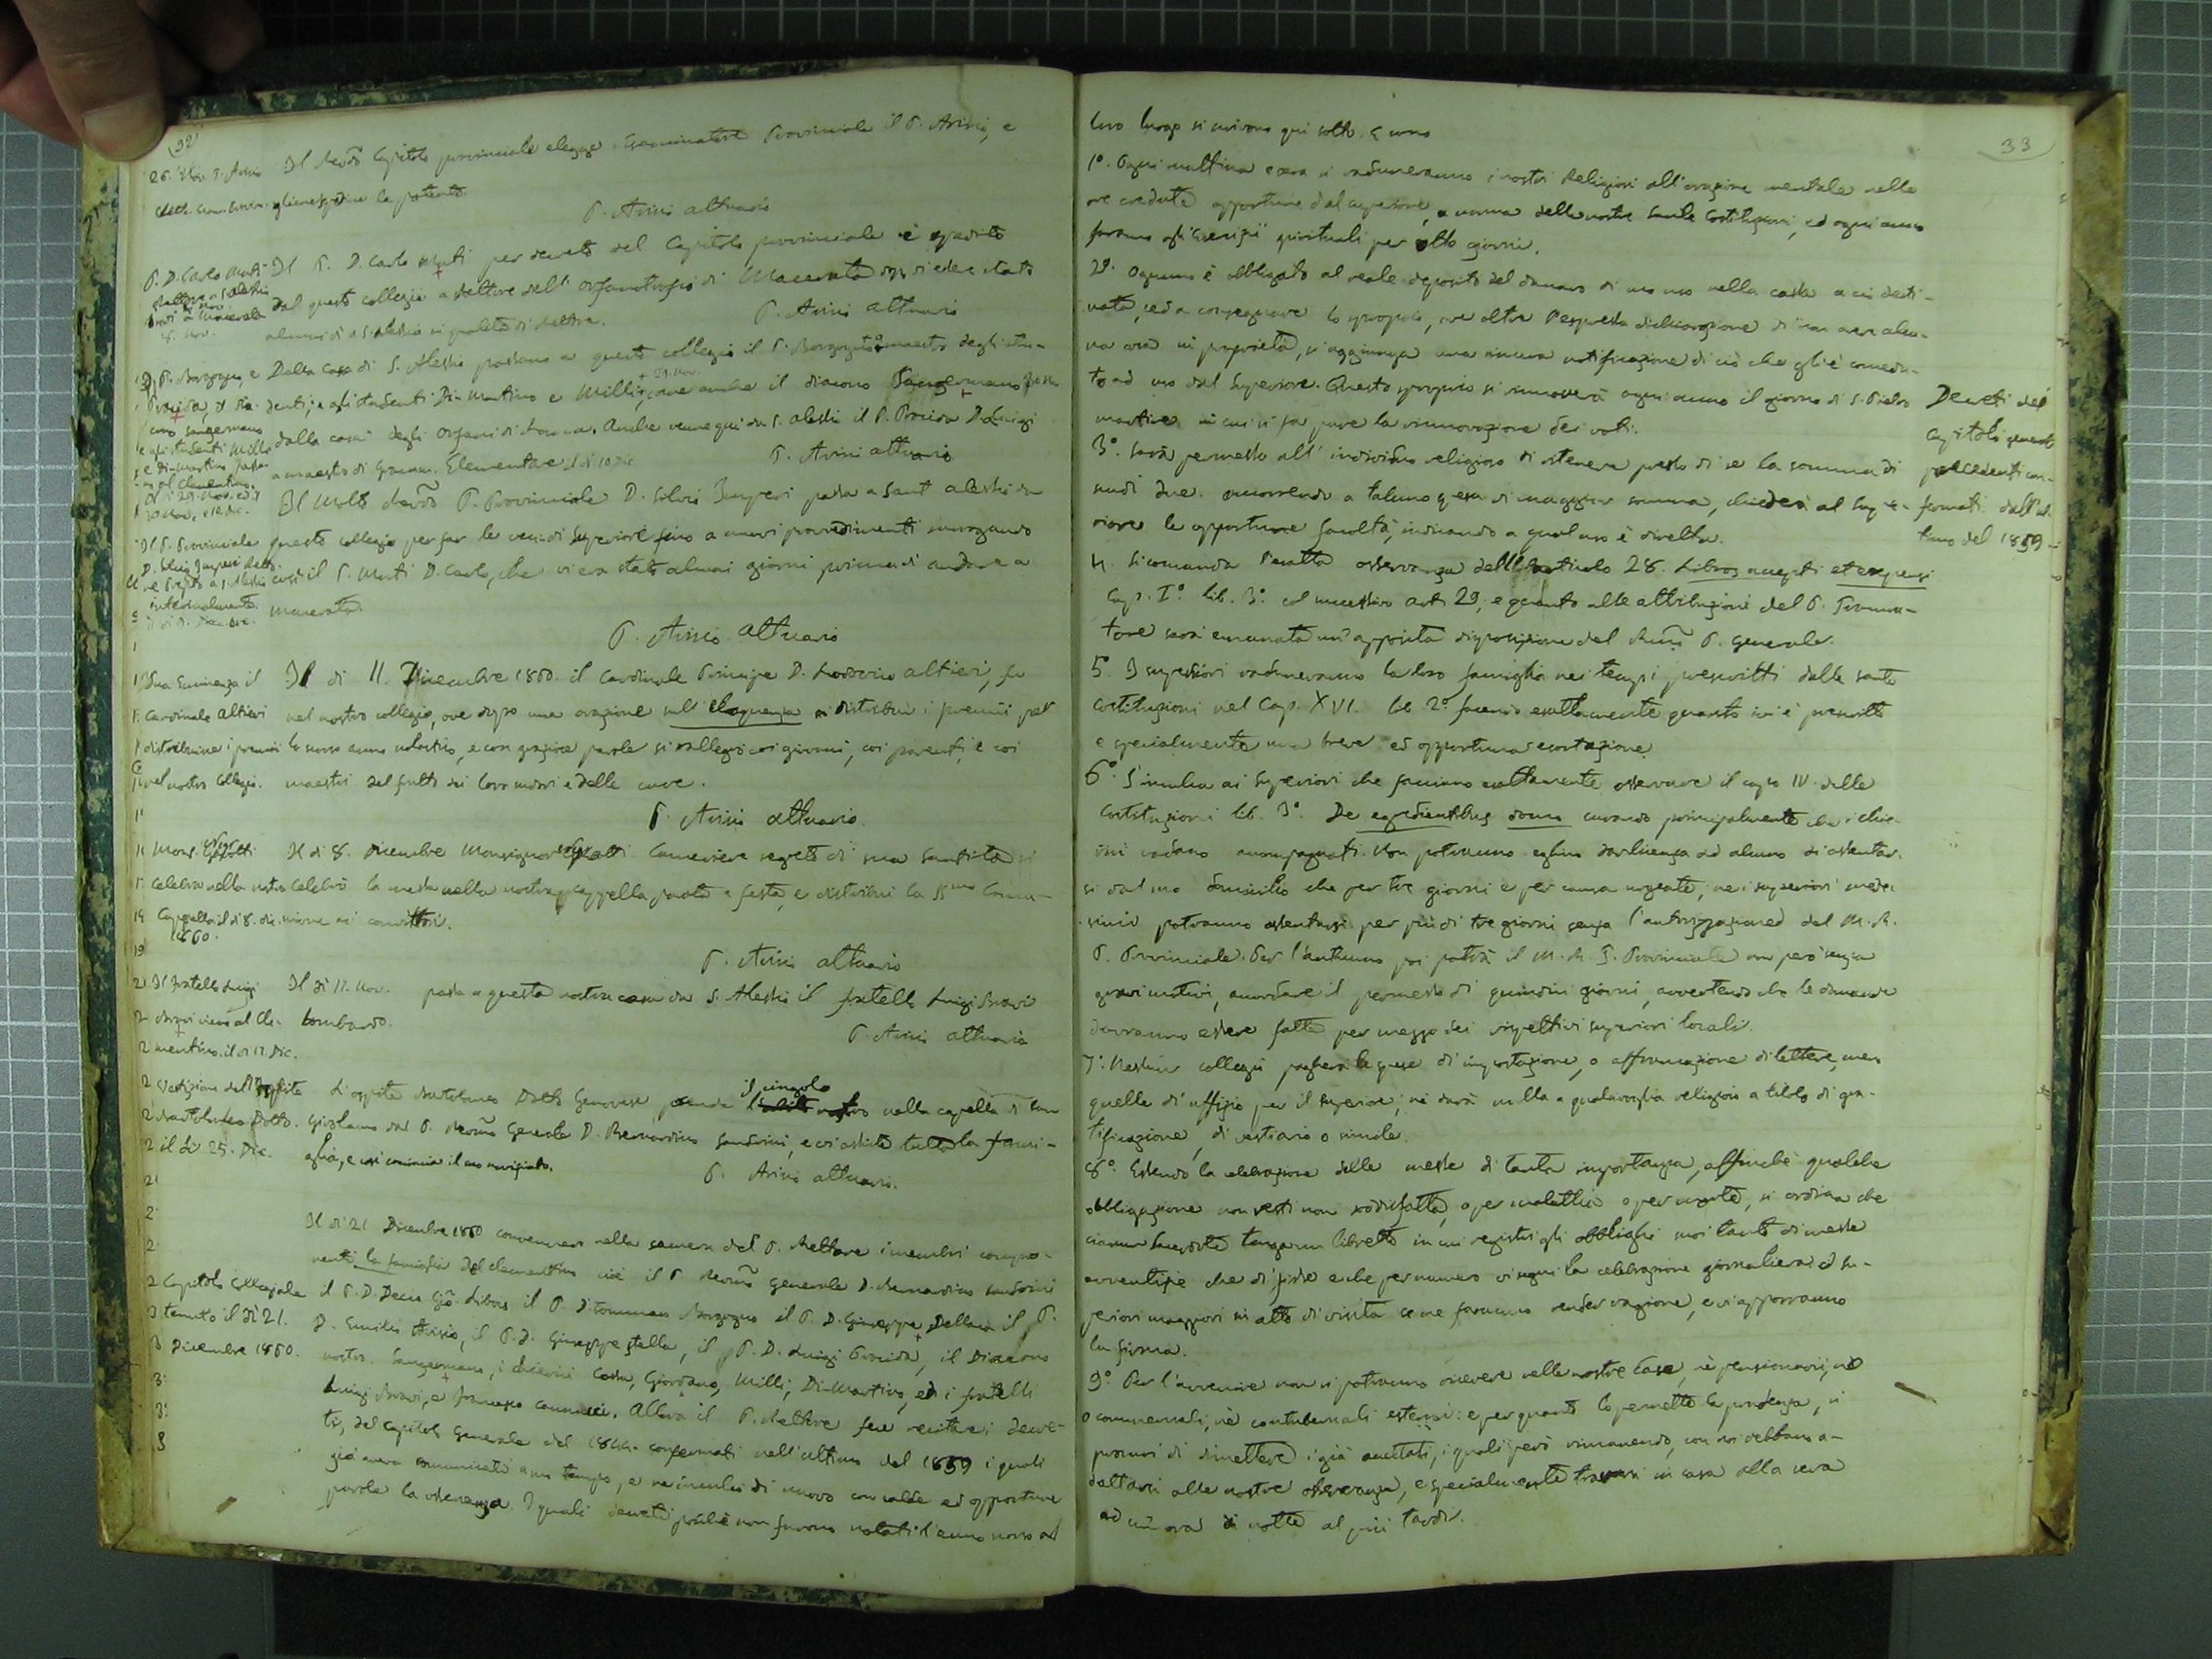 32
26. Nov. P. Arisio
Il Revdo Capitolo provinciale elegge Esaminatore Provinciale il P. Arisio, e
gliene spedisce la patente.
P. Arisio attuario
P. D. Carlo Muti
Rettore a S. Alessio
Macerata
Il P. D. Carlo Muti per decreto del Capitolo provinciale è spedito
dal questo collegio a Rettore dell' Orfanotrofio di Macerata dopo di essere stato
alcuni dì a S. Alessio in qualità di Rettore.
P. Arisio attuario
P. Borgogno, e
Procida, il dia-
cono Sangermano
e gli studenti Milli
e Di-Martino passa-
no al Clementino.
Dalla Casa di S. Alessio passano a questo collegio il P. Borgogno maestro degli stu-
denti, e gli studenti Di-Martino e Milli, come anche il diacono Sangermano
dalla casa degli Orfani di. Anche venne qui da S. Alessio il P. Procida D. Luigi
a maestro di Gramm. Elementare
P. Arisio attuario
Il P. Provinciale
D. Silvio Imperi
a S. Alessio
interinalmente
Il Molto Revdo P. Provinciale D. Silvio Imperi passa a Sant Alessio da
questo collegio per far le veci di Superiore fino a nuovi provvedimenti surrogando
così il P. Muti D. Carlo, che vi era stato alcuni giorni prima di andare a
Macerata.
P. Arisio attuario
Sua Eminenza il
Cardinale Altieri
distribuisce i premii
nel nostro Collegio.
Il dì 11. Dicembre 1860. il Cardinale Principe D. Lodovico Altieri, fu
nel nostro collegio, ove dopo una orazione sull' eloquenza distribuì i premii per
lo scorso anno scolastico, e con graziose parole si rallegrò coi giovani, coi parenti, e coi
maestri del frutto dei loro sudori e delle cure.
P. Arisio attuario.
Mons.
Celebra nella nostra
Cappella il dì 8. dic.
1860.
Il dì 8. dicembre Monsignor Cameriere segreto di sua Santità
Celebrò la messa nella nostra cappella parata a festa, e distribuì la SSma Comu-
nione ai convittori.
P. Arisio attuario
Il Fratello Luigi
Bravi viene al Cle-
mentino. il dì 17. Dic.
Il dì 17. Nov. passa a questa nostra casa da S. Alessio il fratello Luigi Bravi
Lombardo.
P. Arisio attuario
Vestizione dell'Ospite
Bartolomeo Dotto.
il dì 25. Dic.
L'ospite Bartolomeo Dotto Genovese prende il cingolo nella cappella di San
Girolamo dal P. Revmo Generale D. Bernardino Sandrini, e vi assiste tutta la fami-
glia, e così comincia il suo noviziato.
P. Arisio attuario.
Capitolo Collegiale
tenuto il dì 21.
Dicembre 1860.
Il dì 21 Dicembre 1860 convennero nella camera del P. Rettore i membri compo-
nenti la famiglia del Clementino cioè il P. Revmo generale D. Bernardino Sandrini
il P. D. Decio Gio. Libois il P. D. Tommaso Borgogno il P. D. Giuseppe Dellacà il P.
D. Emilio Arisio, il P. D. Giuseppe Stella, il P. D. Luigi Procida, il Diacono
nostro Sangermano, i chierici Costa, Giordano, Milli, Di-Martino, ed i fratelli
Luigi Bravi, e Francesco. Allora il P. Rettore fece recitare i decre-
ti, del Capitolo Generale del 1844. confermati nell'ultimo del 1859 i quali
già aveva comunicati a suo tempo, e ne inculcò di nuovo con calde ed opportune
parole la osservanza. I quali decreti poichè non furono notati l'anno scorso al
33
loro luogo si scrivono qui sotto. E sono
1º. Ogni mattina e sera si raduneranno i nostri Religiosi all'orazione mentale nelle
ore credute opportune dal superiore, a norma delle nostre Sante Costituzioni, ed ogni anno
faranno gli Esercizii spirituali per otto giorni.
2º. Ognuno è obbligato al reale deposito del danaro di suo uso nella cassa a ciò desti-
nata, ed a consegnare lo spropio, ove oltre l'espressa dichiarazione di non aver alcu-
na cosa in proprietà, si aggiunga una sincera notificazione di ciò che gli è concedu-
to ad uso dal Superiore. Questo spropio si rinnoverà ogni anno il giorno di S. Pietro
martire in cui si fa pure la rinnovazione dei voti.
Decreti del
Capitolo generale
precedenti con-
fermati dall'ul-
timo del 1859
3º. Sarà permesso all' individuo religioso di ritenere presso di se la somma di
scudi due. occorrendo a taluno spesa di maggior somma, chiederà al Supe-
riore le opportune facoltà, indicando a qual uso è diretta.
4. Si comanda l'esatta osservanza dell'articolo 28. Libros accepti et expensi
Cap. I.º lib. 3º. col successivo art. 29, e quanto alle attribuzioni del P. Procura-
tore sarà emanata un'apposita disposizione del Revmo P. Generale.
5º I superiori raduneranno la loro famiglia nei tempi prescritti dalle sante
Costituzioni nel Cap. XVI. lib 2º. facendo esattamente quanto ivi è prescritto
e specialmente una breve ed opportuna esortazione.
6º. S'inculca ai Superiori che facciano esattamente osservare il capo IV. delle
Costituzioni lib. 3º. De egredientibus domo curando principalmente che i chie-
rici vadano accompagnati. Non potranno eglino dar licenza ad alcuno di assentar-
si dal suo domicilio che per tre giorni e per causa urgente, ne i superiori mede-
simi potranno assentarsi per più di tre giorni senza l'autorizzazione del M. R.
P. Provinciale. Per l'autunno poi potrà il M. R. P. Provinciale non però senza
gravi motivi, accordare il permesso di quindici giorni, avvertendo che le domande
dovranno essere fatte per mezzo dei rispettivi superiori locali.
7º. Nessun collegio pagherà le spese di impostazione, o affrancazione di lettere, meno
quelle di uffizio per il superiore, nè darà nulla a qualsivoglia religioso a titolo di gra-
tificazione, di vestiario o simile.
8º. Essendo la celebrazione delle messe di tanta importanza, affinchè qualche
obbligazione non resti non soddisfatta, o per malattia o per morte, si ordina che
ciascun Sacerdote tenga un libretto in cui registri gli obblighi suoi tanto di messe
avventizie che di fisse e che per numero vi segni la celebrazione giornaliera. I Su-
periori maggiori in atto di visita se ne faranno render ragione, e vi apporranno
la firma.
9º. Per l'avvenire non si potranno ricevere nelle nostre Case, nè pensionarii, nè
commensali, nè contubernali esterni: e per quanto lo permette la prudenza, si
procuri di dimettere i già accettati, i quali però rimanendo, con noi debbano a-
dattarsi alle nostre osservanze, e specialmente trovarsi in casa alla sera
ad un'ora di notte al più tardi.